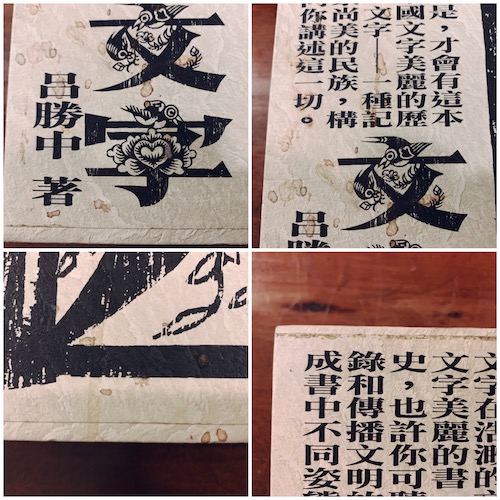 文字
呂勝中 著
是，才會有這本
國文字美麗的歷
文字——一種記
尚美的民族，構
你講述這一切。
文
呂勝
文字在浩渺的
文字美麗的書
史，也許你可
錄和傳播文明的
成書中不同姿態